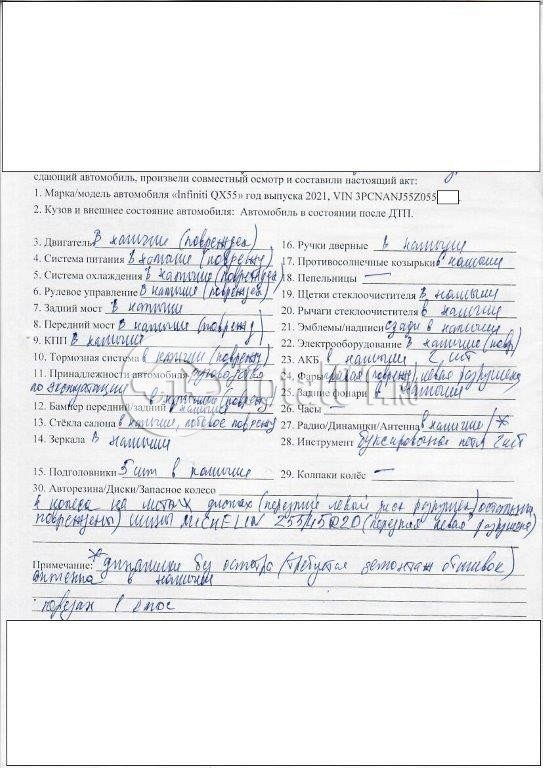 сдающий автомобиль, произвели совместный осмотр и составили настоящий акт:
1. Марка/модель автомобиля «Infiniti QX55» год выпуска 2021, VIN 3PCNANJ55Z055
2. Кузов и внешнее состояние автомобиля: Автомобиль в состоянии после ДТП.
3. Двигатель в наличие (поврежден)
4. Система питания в наличие (поврежд)
5. Система охлаждения в наличие (повреждена)
6. Рулевое управление в наличие (поврежд)
7. Задний мост в наличие
8. Передний мост в наличие (поврежд)
9. КПП в наличие
10. Тормозная система в наличии (поврежд)
11. Принадлежности автомобиля руководство
по эксплуатации
12. Бампер передний/задний в наличие (поврежд)
13. Стёкла салона в наличие, лобовое поврежд
14. Зеркала в наличие
15. Подголовники 5 шт в наличие
16. Ручки дверные в наличие
17. Противосолнечные козырьки в наличие
18. Пепельницы —
19. Щетки стеклоочистителя в наличие
20. Рычаги стеклоочистителя в наличие
21. Эмблемы/надписи сзади в наличие
22. Электрооборудование в наличие (повр)
23. АКБ в наличие 2 шт
24. Фары правая (поврежд), левая разрушена
25. Задние фонари в наличие
26. Часы
27. Радио/Динамики/Антенна в наличие /*
28. Инструмент буксировочная петля 2 шт
29. Колпаки колёс —
30. Авторезина/Диски/Запасное колесо
4 колеса на литых дисках (передний левый диск разрушен, остальные
повреждены) шины MICHELIN 255/45 R20 (передняя левая разрушена)
Примечание: * динамики без осмотра (требуется демонтаж обшивок)
антенна в наличие